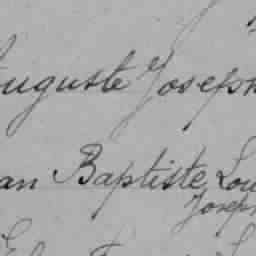 Auguste Joseph
an Baptiste Lou
Joseph